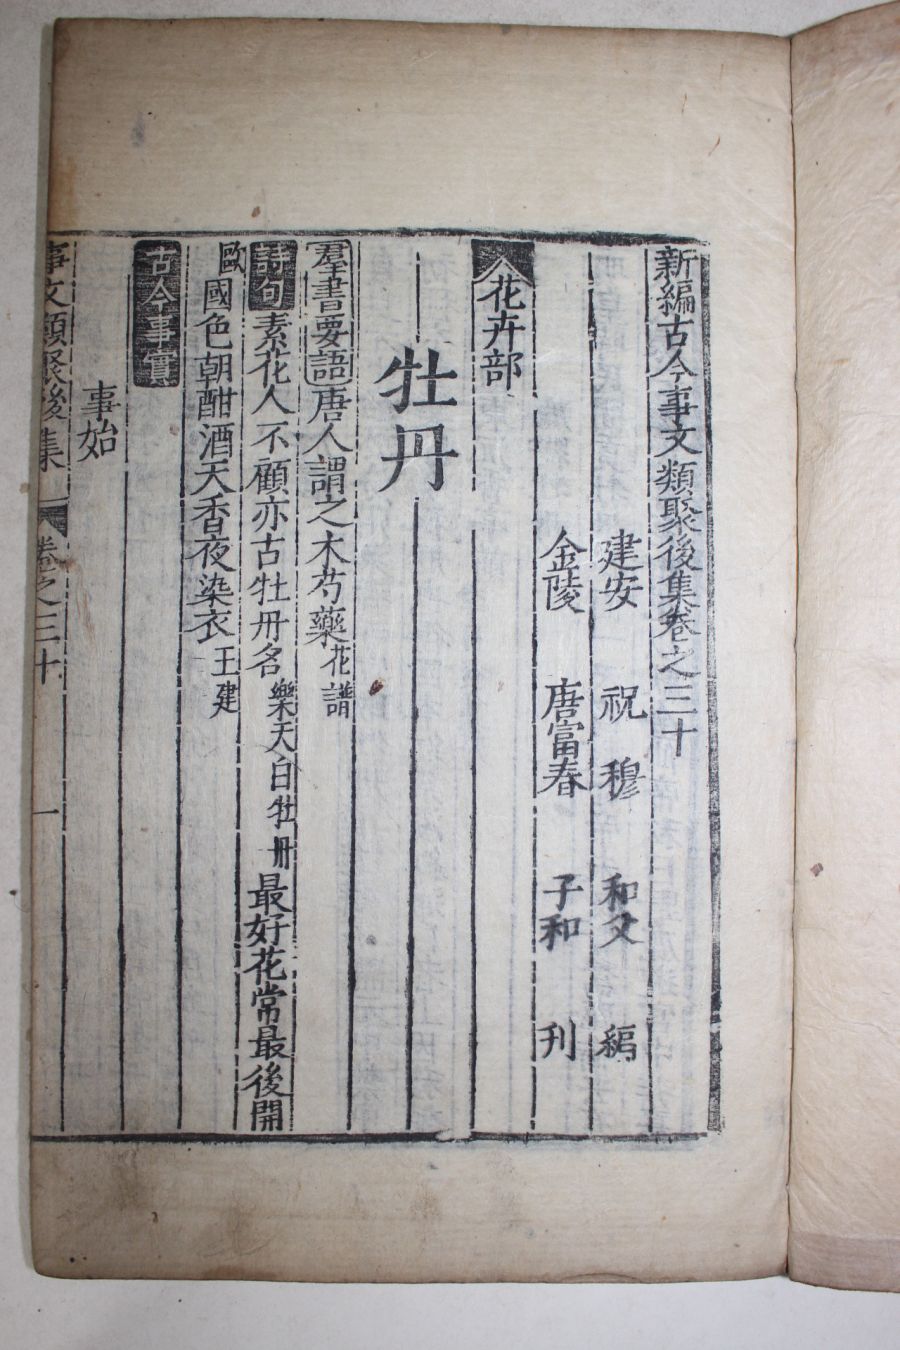 新編古今事文類聚後集卷之三十
建安 祝 穆 和父 編
金陵 唐富春 子和 刊
花卉部
牡丹
羣書要語唐人謂之木芍藥花譜
詩句素花人不顧亦古牡丹名樂天白牡丹最好花常最後開
歐國色朝酣酒天香夜染衣王建
古今事實
事始
事文類聚後集 卷之三十 一